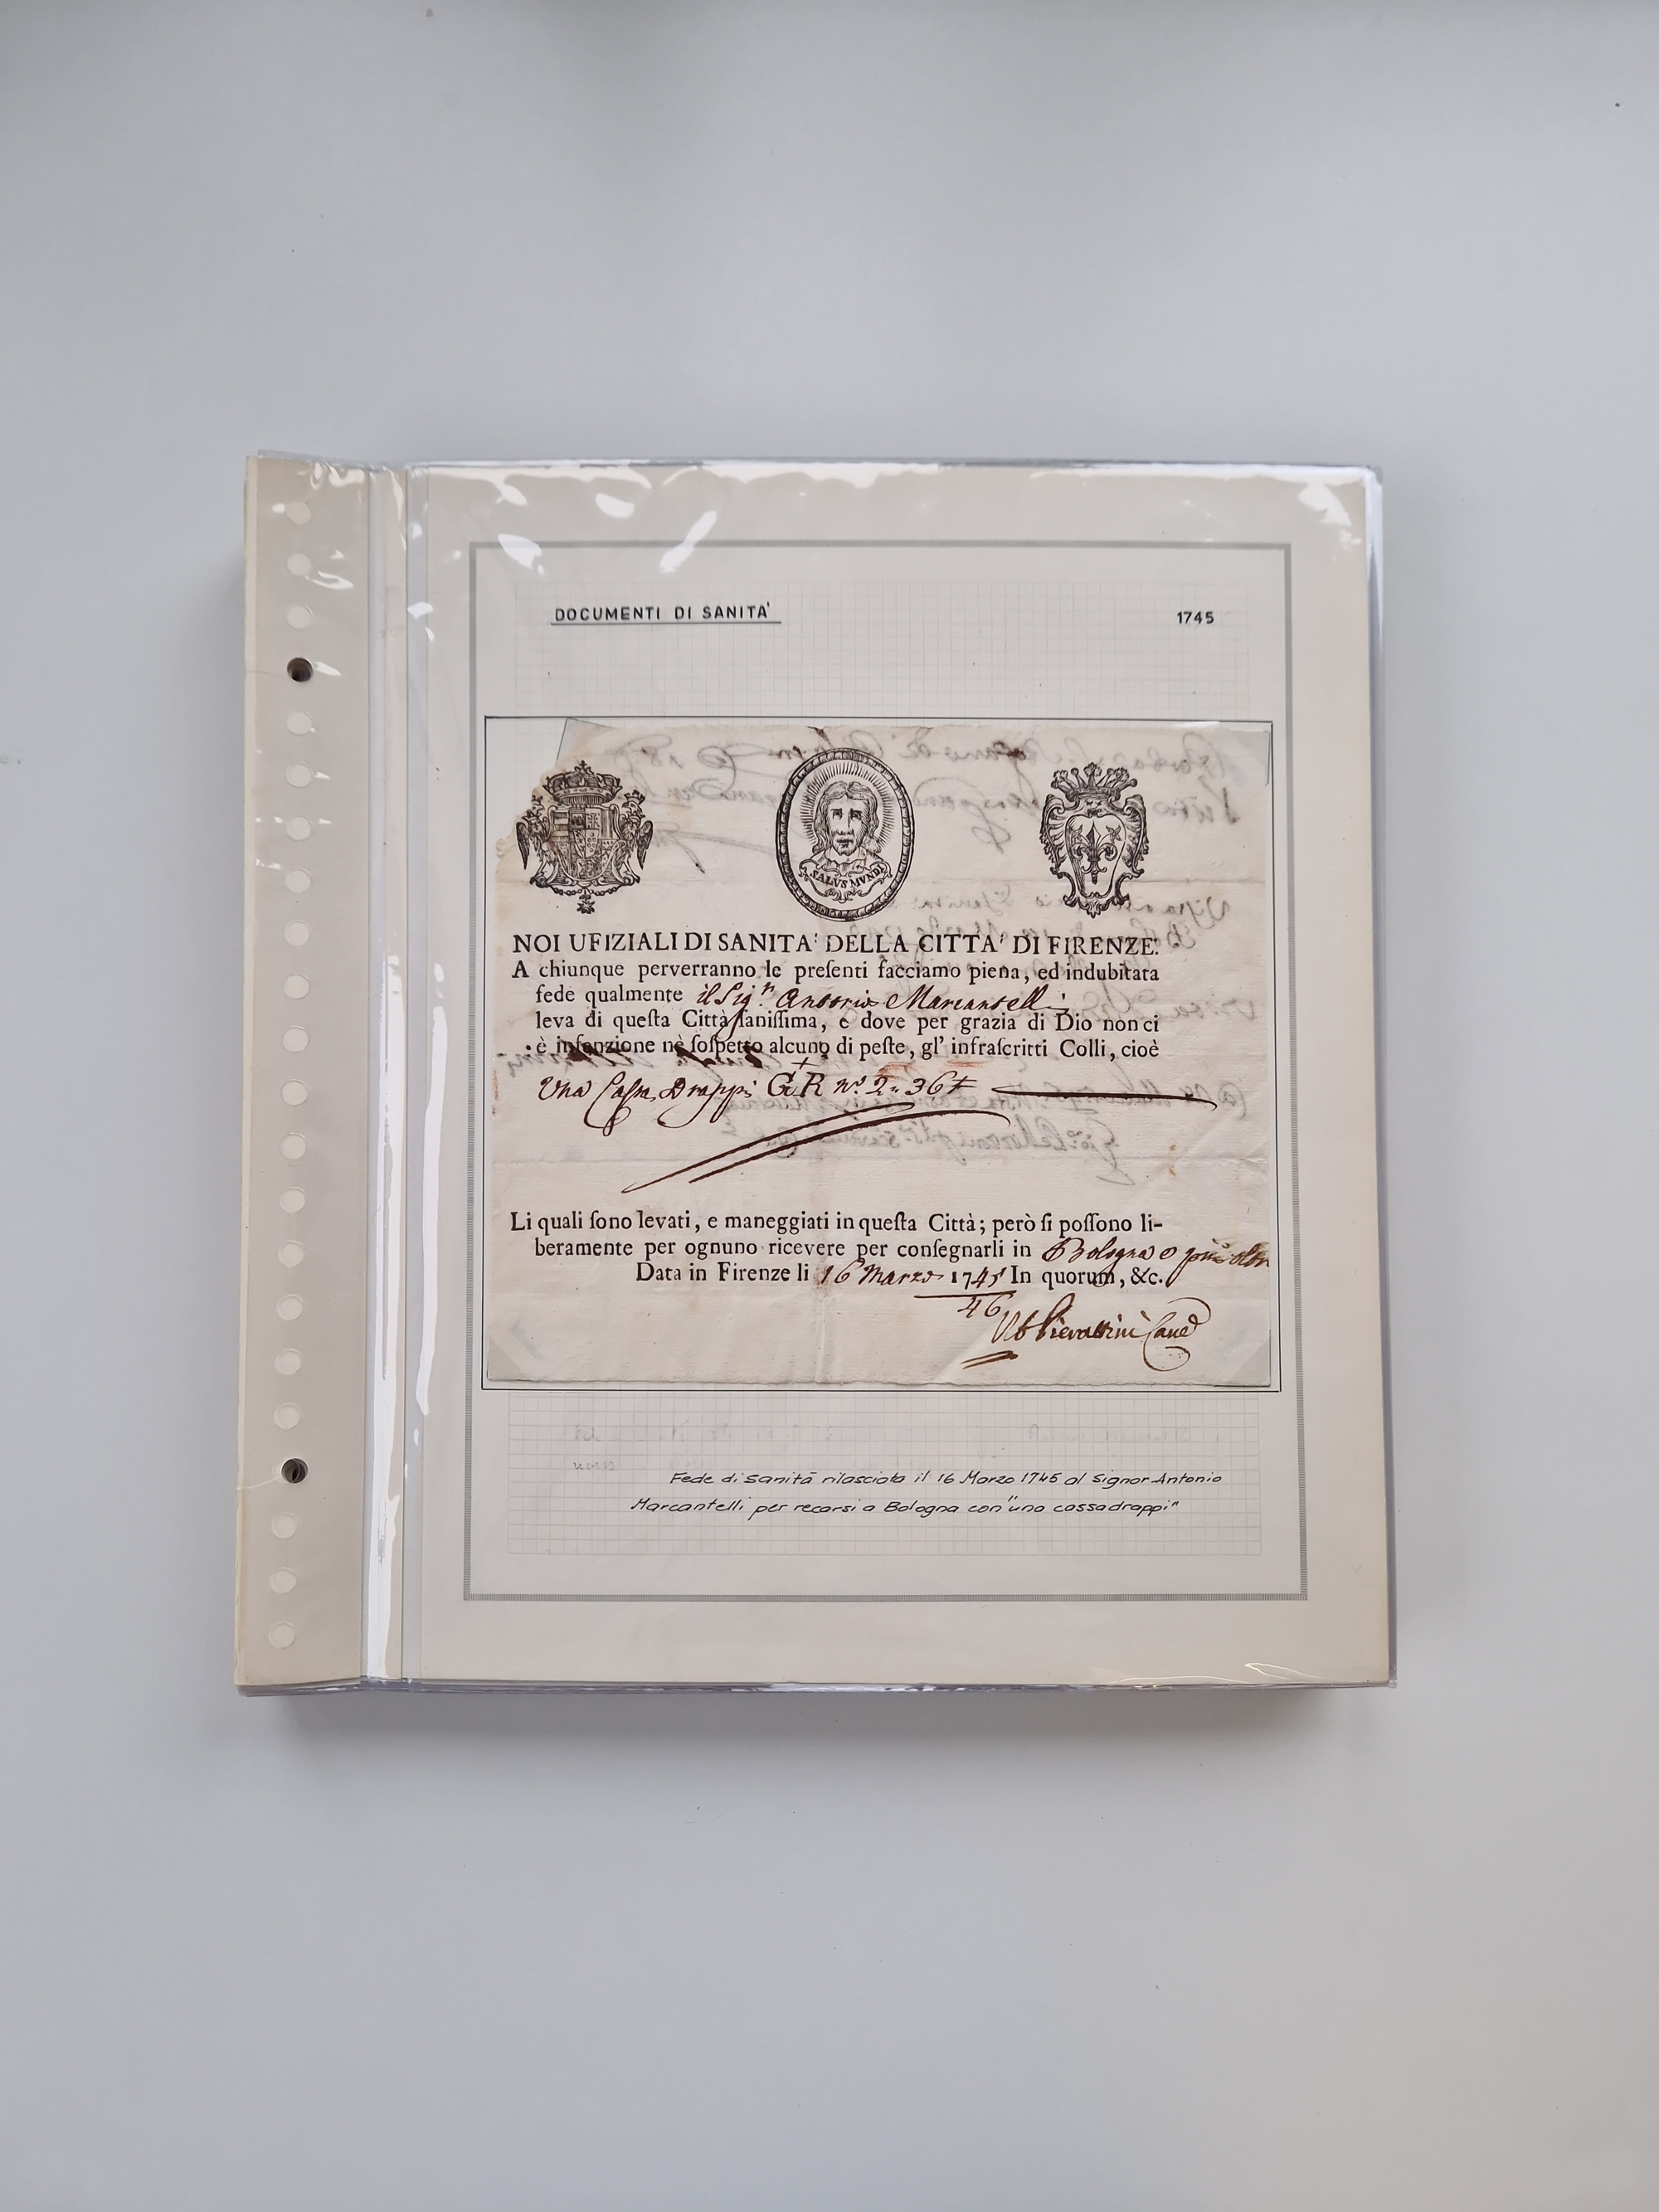 DOCUMENTI DI SANITA'
1745
SALVS MVNDI
NOI UFIZIALI DI SANITA' DELLA CITTA' DI FIRENZE.
A chiunque perverranno le preſenti facciamo piena, ed indubitata
fede qualmente il Sig.r Antonio Marcantelli
leva di queſta Città ſaniſſima, e dove per grazia di Dio non ci
è infenzione nè ſoſpetto alcuno di peſte, gl' infraſcritti Colli, cioè
Una Caſſa Drappi G R nº 2 = 36
Li quali ſono levati, e maneggiati in queſta Città; però ſi poſſono li-
beramente per ognuno ricevere per conſegnarli in Bologna e più oltre
Data in Firenze li 16 Marzo 1745 In quorum, &c.
46
Fede di Sanità rilasciata il 16 Marzo 1745 al Signor Antonio
Marcantelli per recarsi a Bologna con "una cassa drappi"